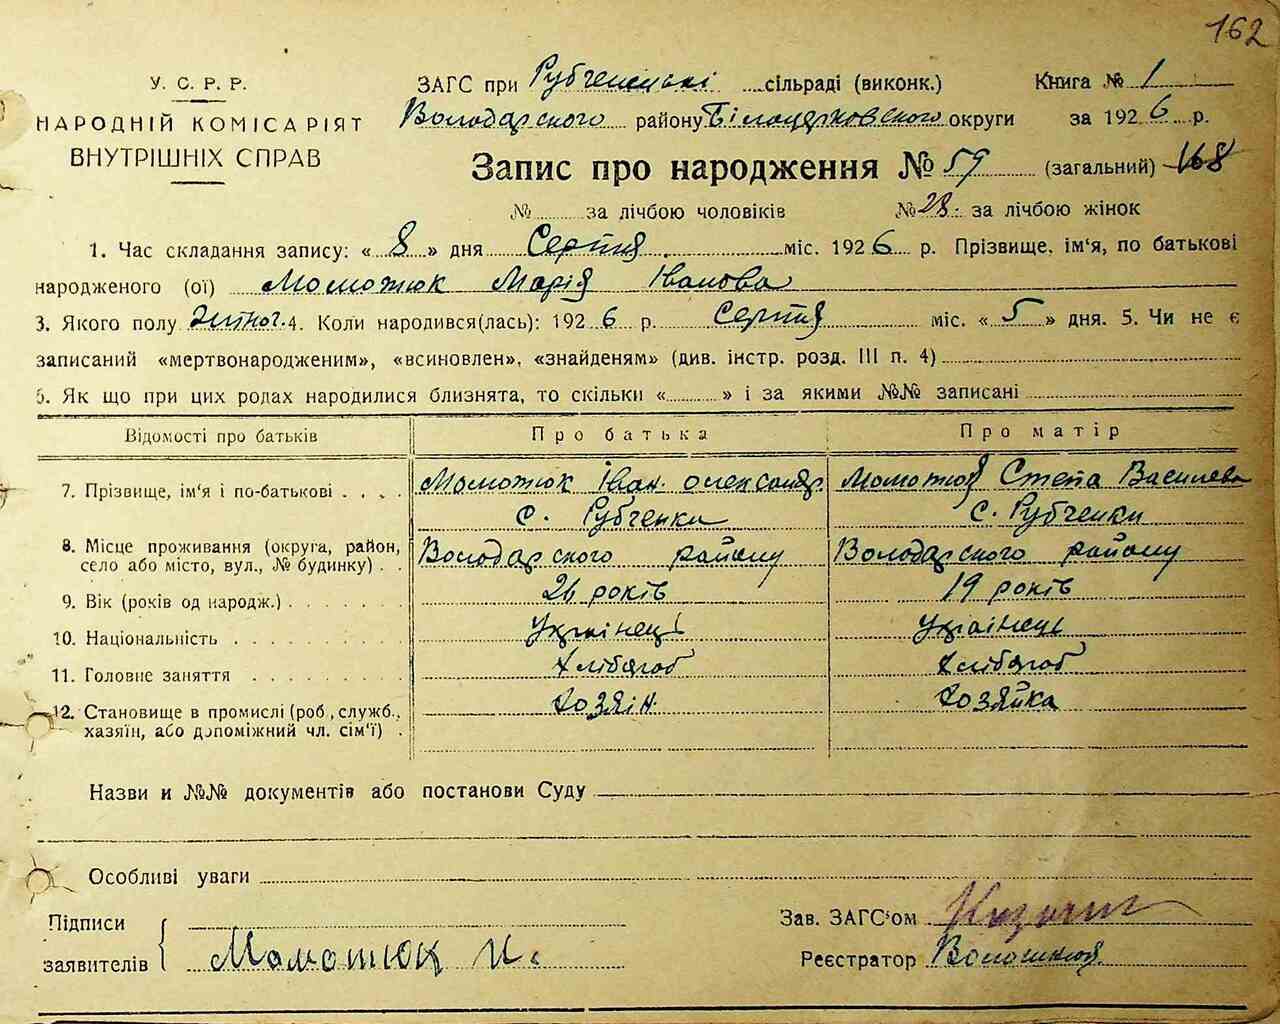 162
У. С. Р. Р.
НАРОДНІЙ КОМІСАРІЯТ
ВНУТРІШНІХ СПРАВ
ЗАГС при сільраді (виконк.) Книга № 1
Володарського району Білоцерковського округи за 1926 р.
Запис про народження № 59 (загальний) 168
№ за лічбою чоловіків № 28. за лічбою жінок
1. Час складання запису: « 8 » дня Серпня міс. 1926 р. Прізвище, ім'я, по батькові
народженого (ої) Момотюк Марія Іванова
3. Якого полу 4. Коли народився(лась): 1926 р. Серпня міс. « 5 » дня. 5. Чи не є
записаний «мертвонародженим», «всиновлен», «знайденям» (див. інстр. розд. III п. 4)
6. Як що при цих родах народилися близнята, то скільки « » і за якими №№ записані
Відомості про батьків Про батька Про матір
7. Прізвище, ім'я і по-батькові Момотюк Іван. Олександр. Момотюк Степа Василева
с. Рубченки с. Рубченки
8. Місце проживання (округа, район, село або місто, вул., № будинку) Володарського району Володарського району
9. Вік (років од народж.) 26 років 19 років
10. Національність Українець Українець
11. Головне заняття Хлібороб Хлібороб
12. Становище в промислі (роб., служб., Хозяін. Хозяйка
хазяїн, або допоміжний чл. сім'ї)
Назви и №№ документів або постанови Суду
Особливі уваги
Підписи
заявителів Момотюк И.
Зав. ЗАГС'ом
Реєстратор